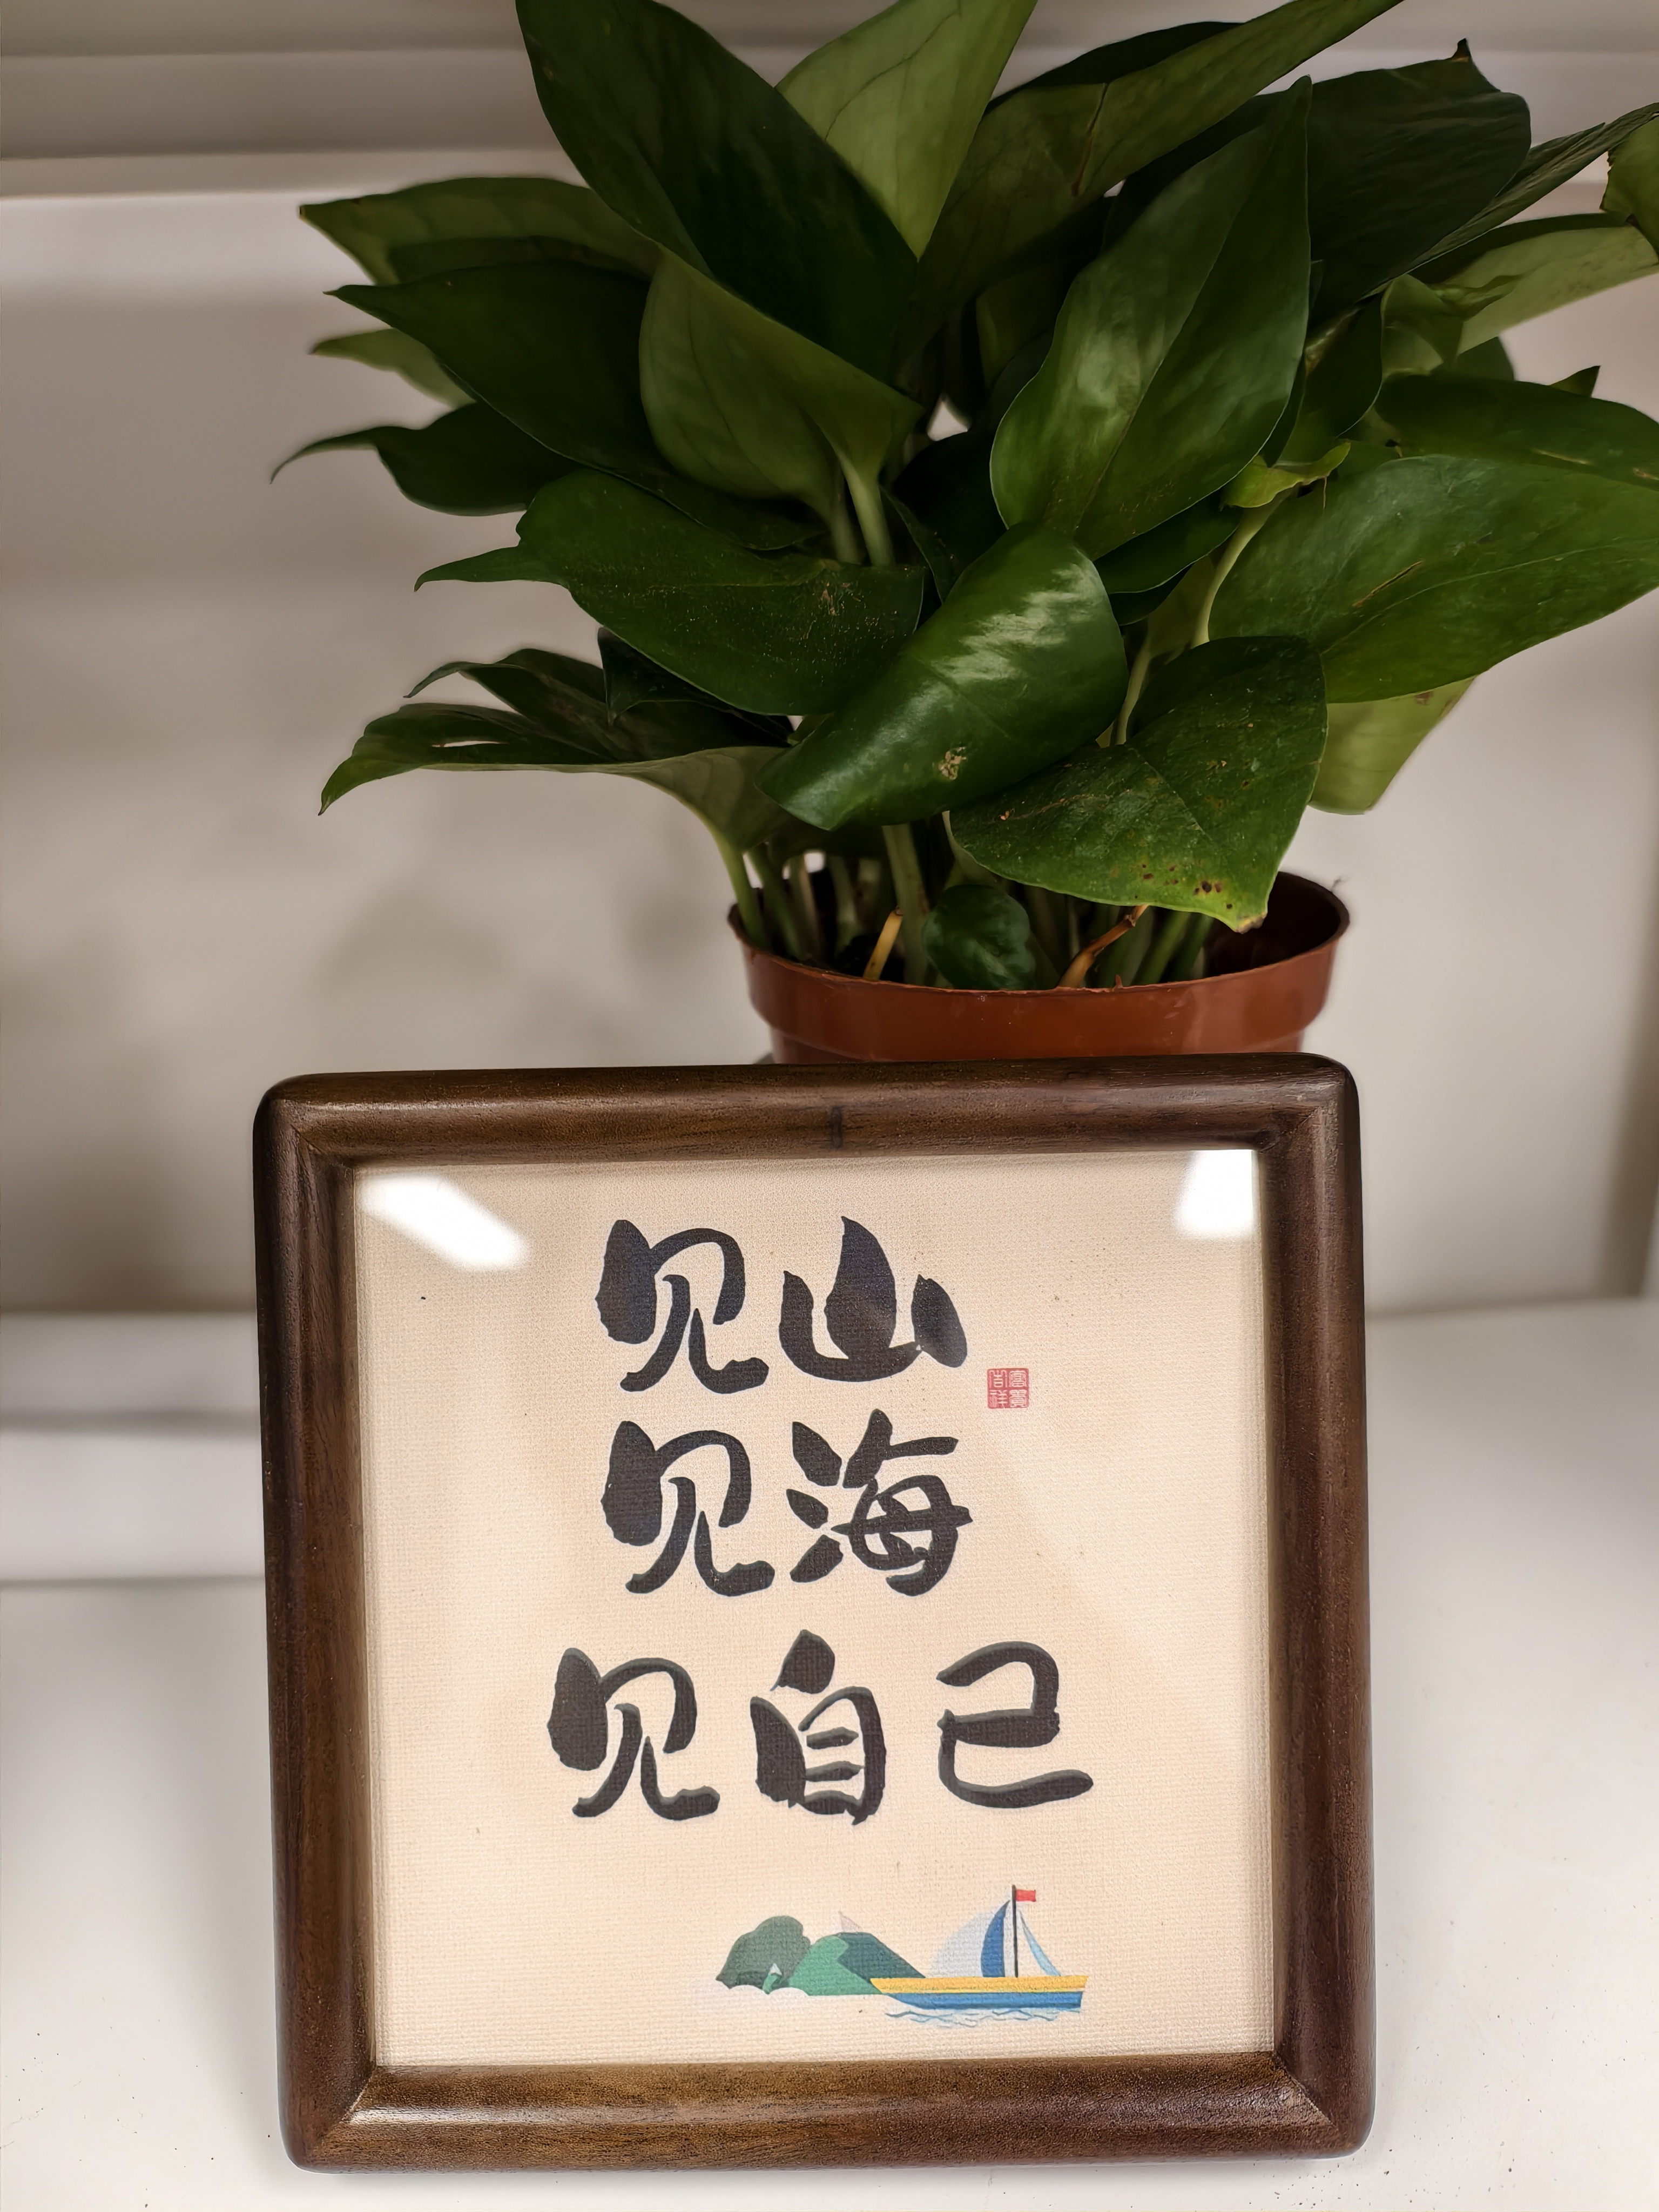 见山
见海
见自己